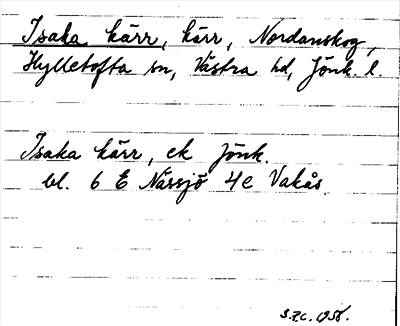 Isaka kärr, kärr, Nordanskog,
Hylletofta sn, Västra hd, Jönk. l.
Isaka kärr, ek Jönk.
bl. 6 E Nässjö 4e Vakås
S.F.C. 1958.